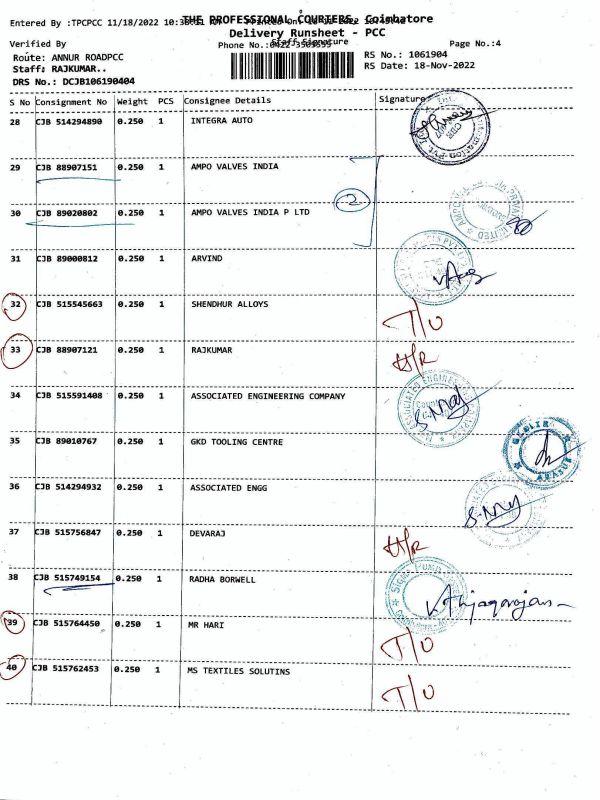 THE PROFESSIONAL COURIERS, Coimbatore
Entered By :TPCPCC 11/18/2022
Delivery Runsheet - PCC
Verified By
Staff Signature
Phone No.:0422-3505555
Page No.:4
Route: ANNUR ROADPCC
RS No.: 1061904
Staff: RAJKUMAR..
RS Date: 18-Nov-2022
DRS No.: DCJB106190404
S No Consignment No Weight PCS Consignee Details Signature
28 CJB 514294890 0.250 1 INTEGRA AUTO
29 CJB 88907151 0.250 1 AMPO VALVES INDIA
2
30 CJB 89020802 0.250 1 AMPO VALVES INDIA P LTD
31 CJB 89000812 0.250 1 ARVIND
32 CJB 515545663 0.250 1 SHENDHUR ALLOYS T/O
33 CJB 88907121 0.250 1 RAJKUMAR H/R
34 CJB 515591408 0.250 1 ASSOCIATED ENGINEERING COMPANY
35 CJB 89010767 0.250 1 GKD TOOLING CENTRE
36 CJB 514294932 0.250 1 ASSOCIATED ENGG
37 CJB 515756847 0.250 1 DEVARAJ H/R
38 CJB 515749154 0.250 1 RADHA BORWELL
39 CJB 515764450 0.250 1 MR HARI T/O
40 CJB 515762453 0.250 1 MS TEXTILES SOLUTINS T/O